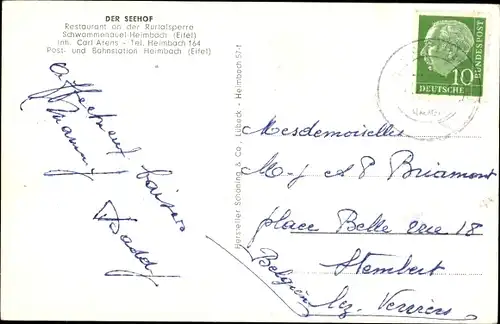 DER SEEHOF
Restaurant an der Rurtalsperre
Schwammenauel-Heimbach (Eifel)
Inh. Carl Arens - Tel. Heimbach 164
Post- und Bahnstation Heimbach (Eifel)
Affectueux baisers
Mammy
Daddy
Hersteller Schöning & Co., Lübeck - Heimbach 57-1
DEUTSCHE BUNDESPOST
10
Mesdemoiselles
M-J et A P Briamont
place Belle vue 18
Stembert
lez. Verviers
Belgien